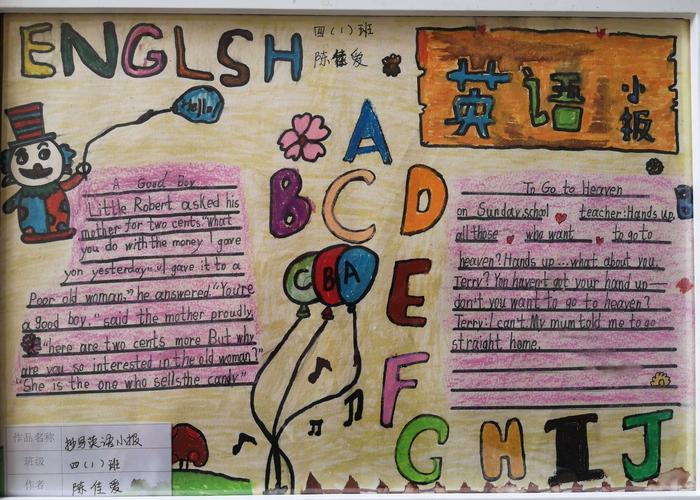 ENGLSH
四（1）班
陈佳爱
英语
小报
Hello
A
B
C
D
E
F
G
H
I
J
C
B
A
A Good Boy
Little Robert asked his
mother for two cents."what
you do with the money I gave
you yesterday". "I gave it to a
Poor old woman." he answered. "You're
a good boy," said the mother proudly
"here are two cents more But why
are you so interested in the old woman?"
"She is the one who sells the candy"
To Go to Heaven
on Sunday.school teacher:Hands up.
all those who want to go to
heaven? Hands up...what about you,
Terry? You haven't got your hand up—
don't you want to go to heaven?
Terry: I can't. My mum told me to go
straight home.
作品名称 抄写英语小报
班级 四（1）班
作者 陈佳爱